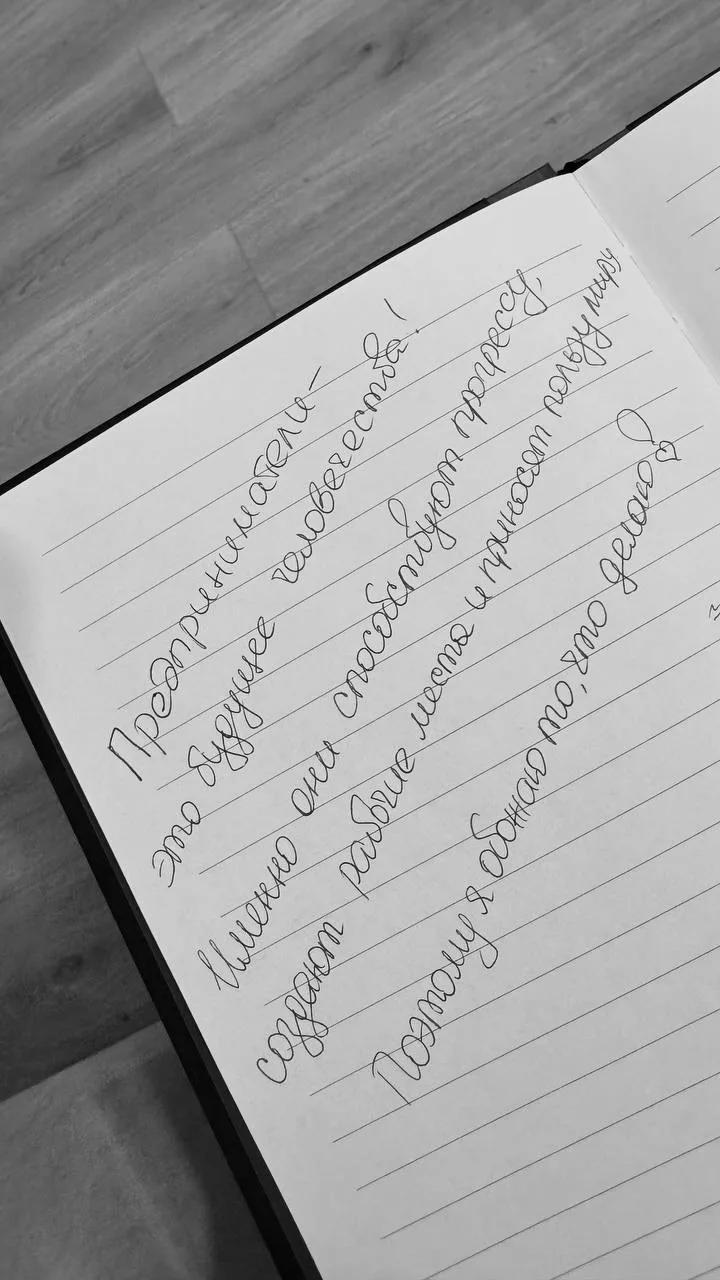 Предприниматели –
это будущее человечества!
Именно они способствуют прогрессу,
создают рабочие места и приносят пользу миру
Поэтому я обожаю то, что делаю♡